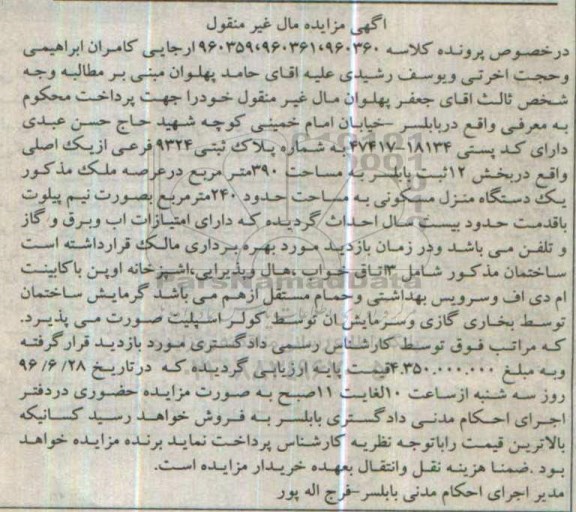 اگهی مزایده مال غیر منقول
درخصوص پرونده کلاسه ۹۶۰۳۵۹،۹۶۰۳۶۱،۹۶۰۳۶۰ ارجایی کامران ابراهیمی
وحجت اخرتی ویوسف رشیدی علیه اقای حامد پهلوان مبنی بر مطالبه وجه
شخص ثالث اقای جعفر پهلوان مال غیر منقول خودرا جهت پرداخت محکوم
به معرفی واقع دربابلسر –خیابان امام خمینی کوچه شهید حاج حسن عبدی
دارای کد پستی ۱۸۱۳۴–۴۷۴۱۷به شماره پلاک ثبتی ۹۳۲۴ فرعی ازیک اصلی
واقع دربخش ۱۲ثبت بابلسر به مساحت ۳۹۰متر مربع درعرصه ملک مذکور
یک دستگاه منزل مسکونی به مساحت حدود ۲۴۰مترمربع بصورت نیم پیلوت
باقدمت حدود بیست سال احداث گردیده که دارای امتیازات اب وبرق و گاز
و تلفن می باشد ودر زمان بازدید مورد بهره برداری مالک قرارداشته است
ساختمان مذکور شامل ۳اتاق خواب ،هال وپذیرایی،اشپزخانه اوپن باکابینت
ام دی اف وسرویس بهداشتی وحمام مستقل ازهم می باشد گرمایش ساختمان
توسط بخاری گازی وسرمایش ان توسط کولر اسپلیت صورت می پذیرد.
که مراتب فوق توسط کارشناس رسمی دادگستری مورد بازدید قرار گرفته
وبه مبلغ ۴.۳۵۰.۰۰۰.۰۰۰قیمت پایه ارزیابی گردیده که درتاریخ ۹۶/۶/۲۸
روز سه شنبه ازساعت ۱۰لغایت ۱۱صبح به صورت مزایده حضوری دردفتر
اجرای احکام مدنی دادگستری بابلسر به فروش خواهد رسید کسانیکه
بالاترین قیمت راباتوجه نظریه کارشناس پرداخت نماید برنده مزایده خواهد
بود .ضمنا هزینه نقل وانتقال بعهده خریدار مزایده است.
مدیر اجرای احکام مدنی بابلسر-فرج اله پور
ParsNamadData